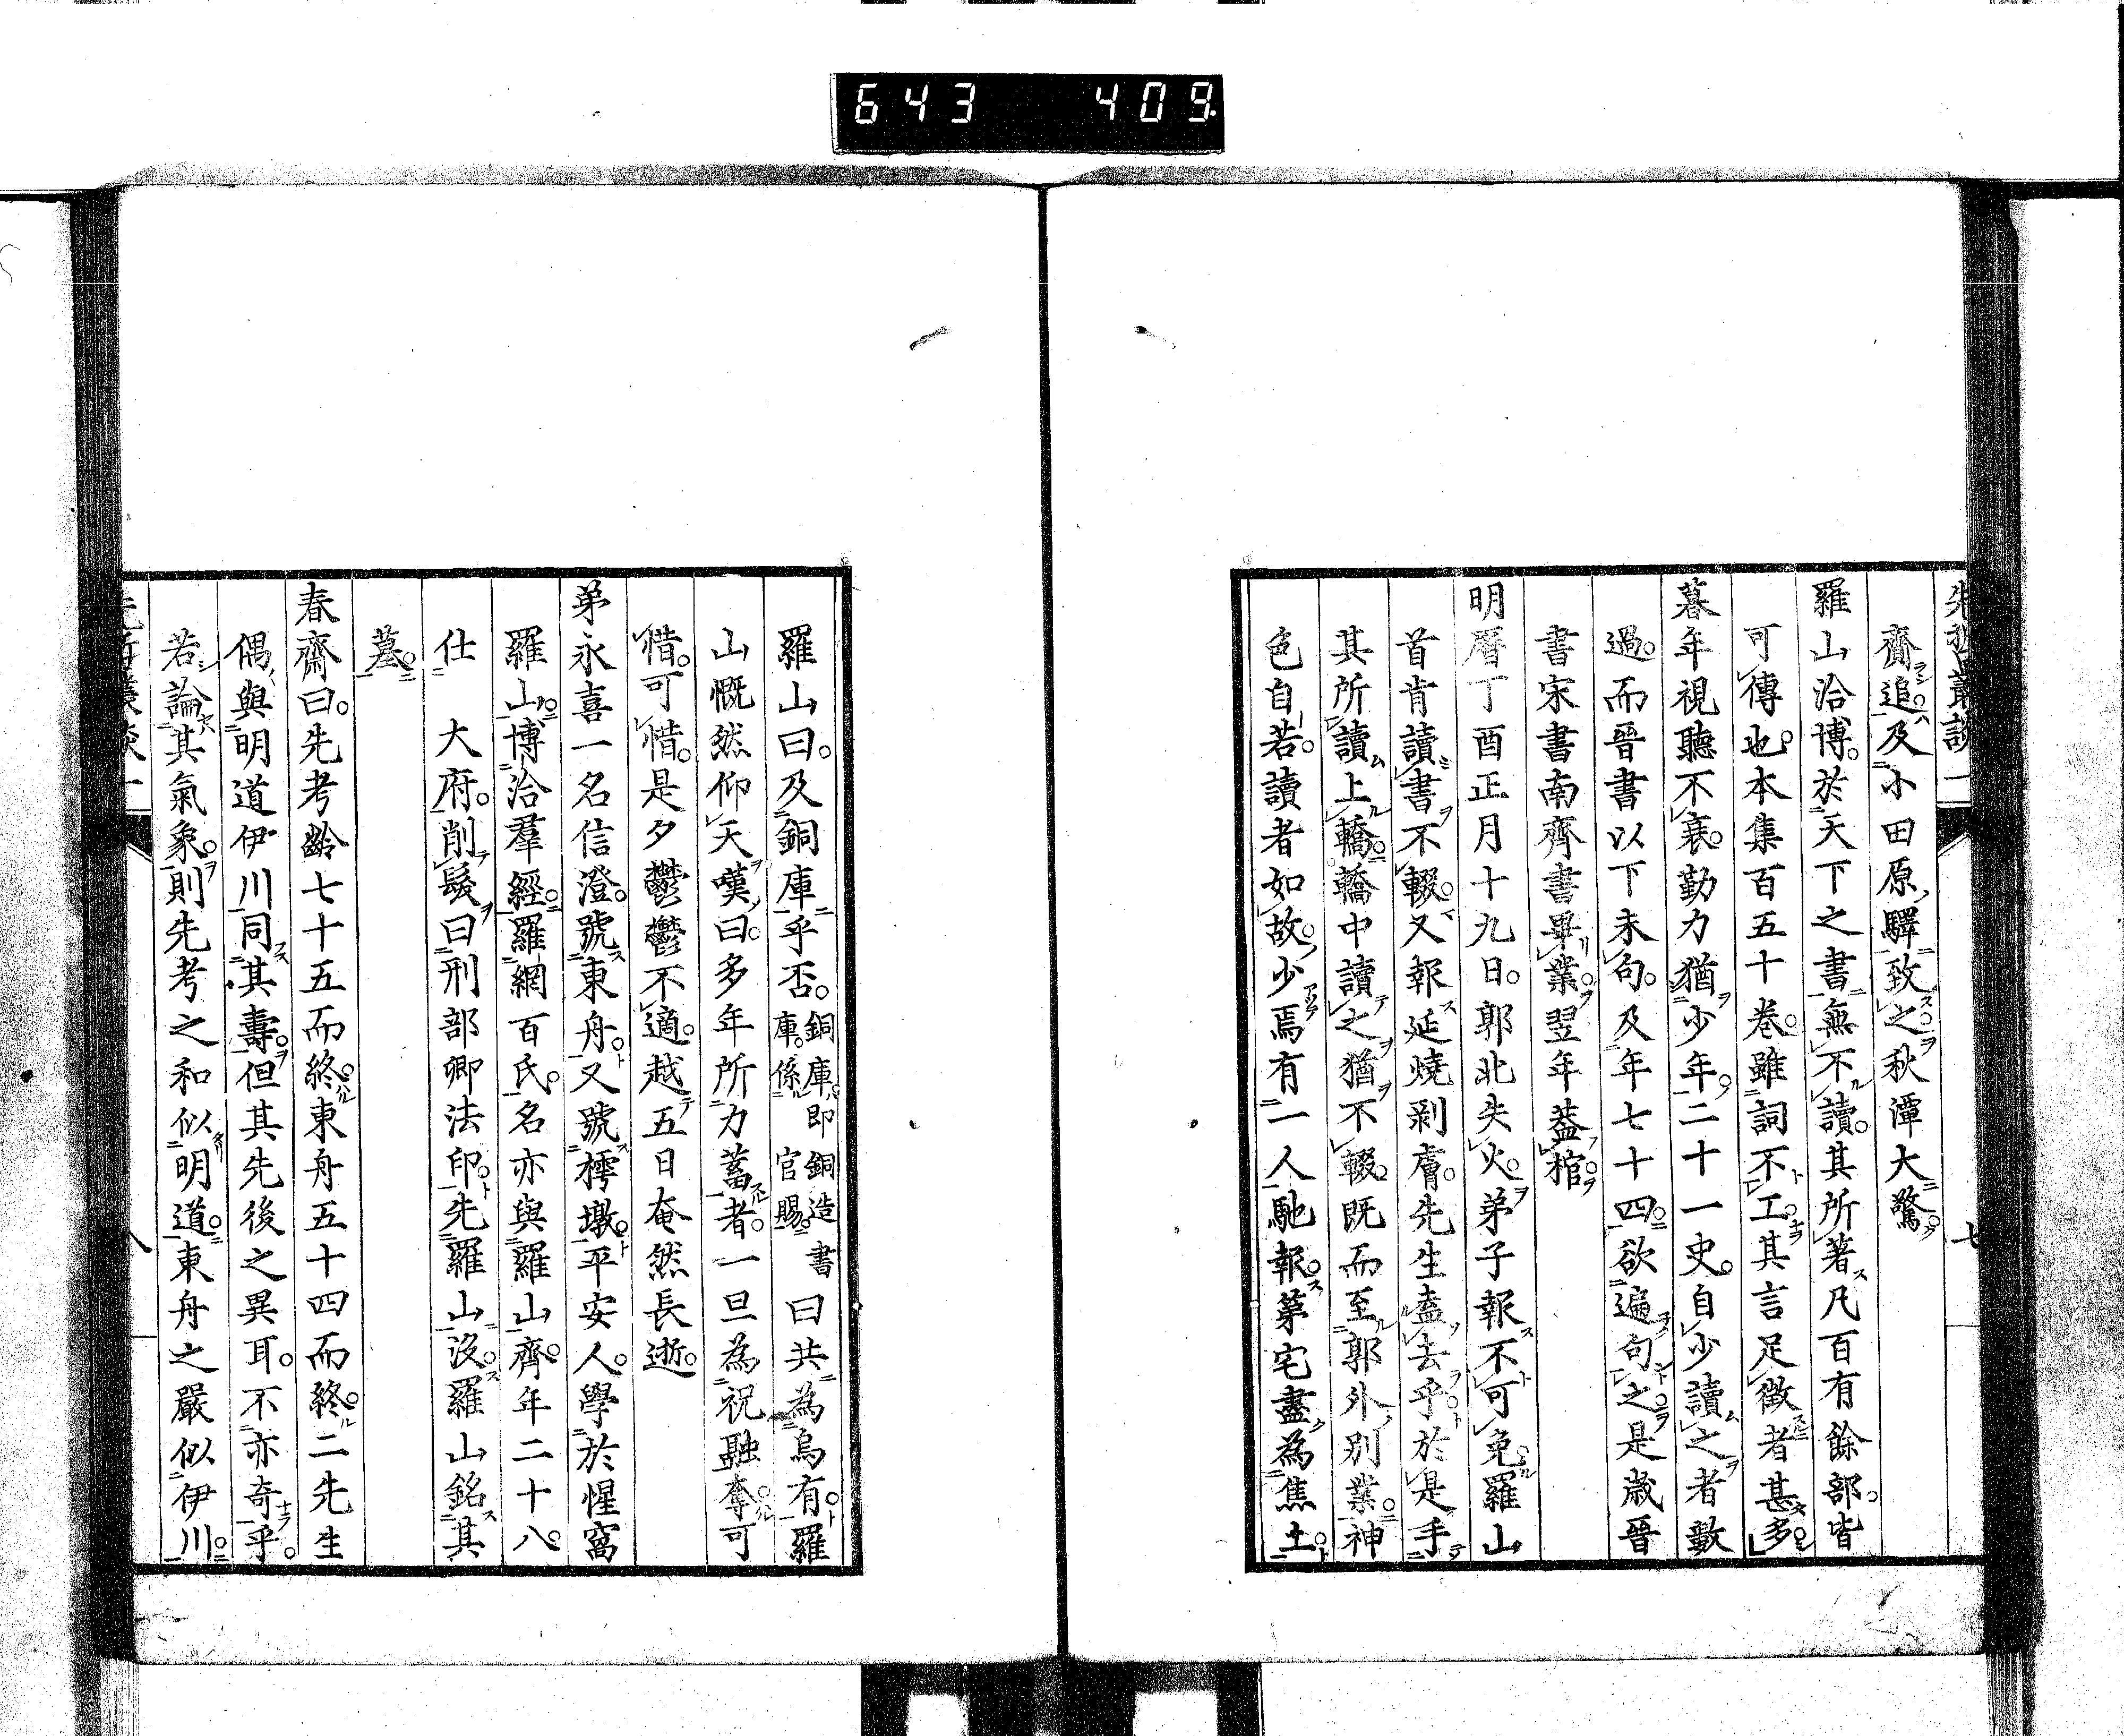 643 409
先哲叢談一 七
齎追及小田原驛致之秋潭大驚
羅山洽博於天下之書無不讀其所著凡百有餘部皆
可傳也本集百五十卷雖詞不工其言足徵者甚多
暮年視聽不衰勤力猶少年二十一史自少讀之者數
過而晉書以下未句及年七十四欲遍句之是歲晉
書宋書南齊書畢業翌年蓋棺
明曆丁酉正月十九日郭北失火弟子報不可免羅山
首肯讀書不輟又報延燒剥膚先生盍去乎於是手
其所讀上轎轎中讀之猶不輟既而至郭外別業神
色自若讀者如故少焉有一人馳報第宅盡為焦土
羅山曰及銅庫乎否銅庫即銅造書庫係官賜曰共為烏有羅
山慨然仰天嘆曰多年所力蓄者一旦為祝融奪可
惜可惜是夕鬱鬱不適越五日奄然長逝
弟永喜一名信澄號東舟又號樗墩平安人學於惺窩
羅山博洽羣經羅網百氏名亦與羅山齊年二十八
仕 大府削髮曰刑部卿法印先羅山沒羅山銘其
墓
春齋曰先考齡七十五而終東舟五十四而終二先生
偶與明道伊川同其壽但其先後之異耳不亦奇乎
若論其氣象則先考之和似明道東舟之嚴似伊川
先哲叢談一 八